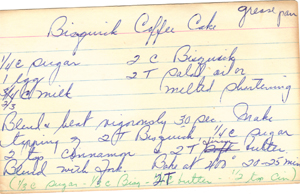 grease pan
Bisquick Coffee Cake
1/4 c sugar 2 C Bisquick
1 egg 2 T salad oil or
3/4 c milk melted shortening
2/3
Blend & beat vigorously 30 sec. Make
topping of 2 T Bisquick, 1/4 c sugar
2 tsp cinnamon & 2 T butter.
Blend with fork. Bake at 400° 20-25 min
sugar - Bisq - 2T butter - 1/2 tsp Cin)